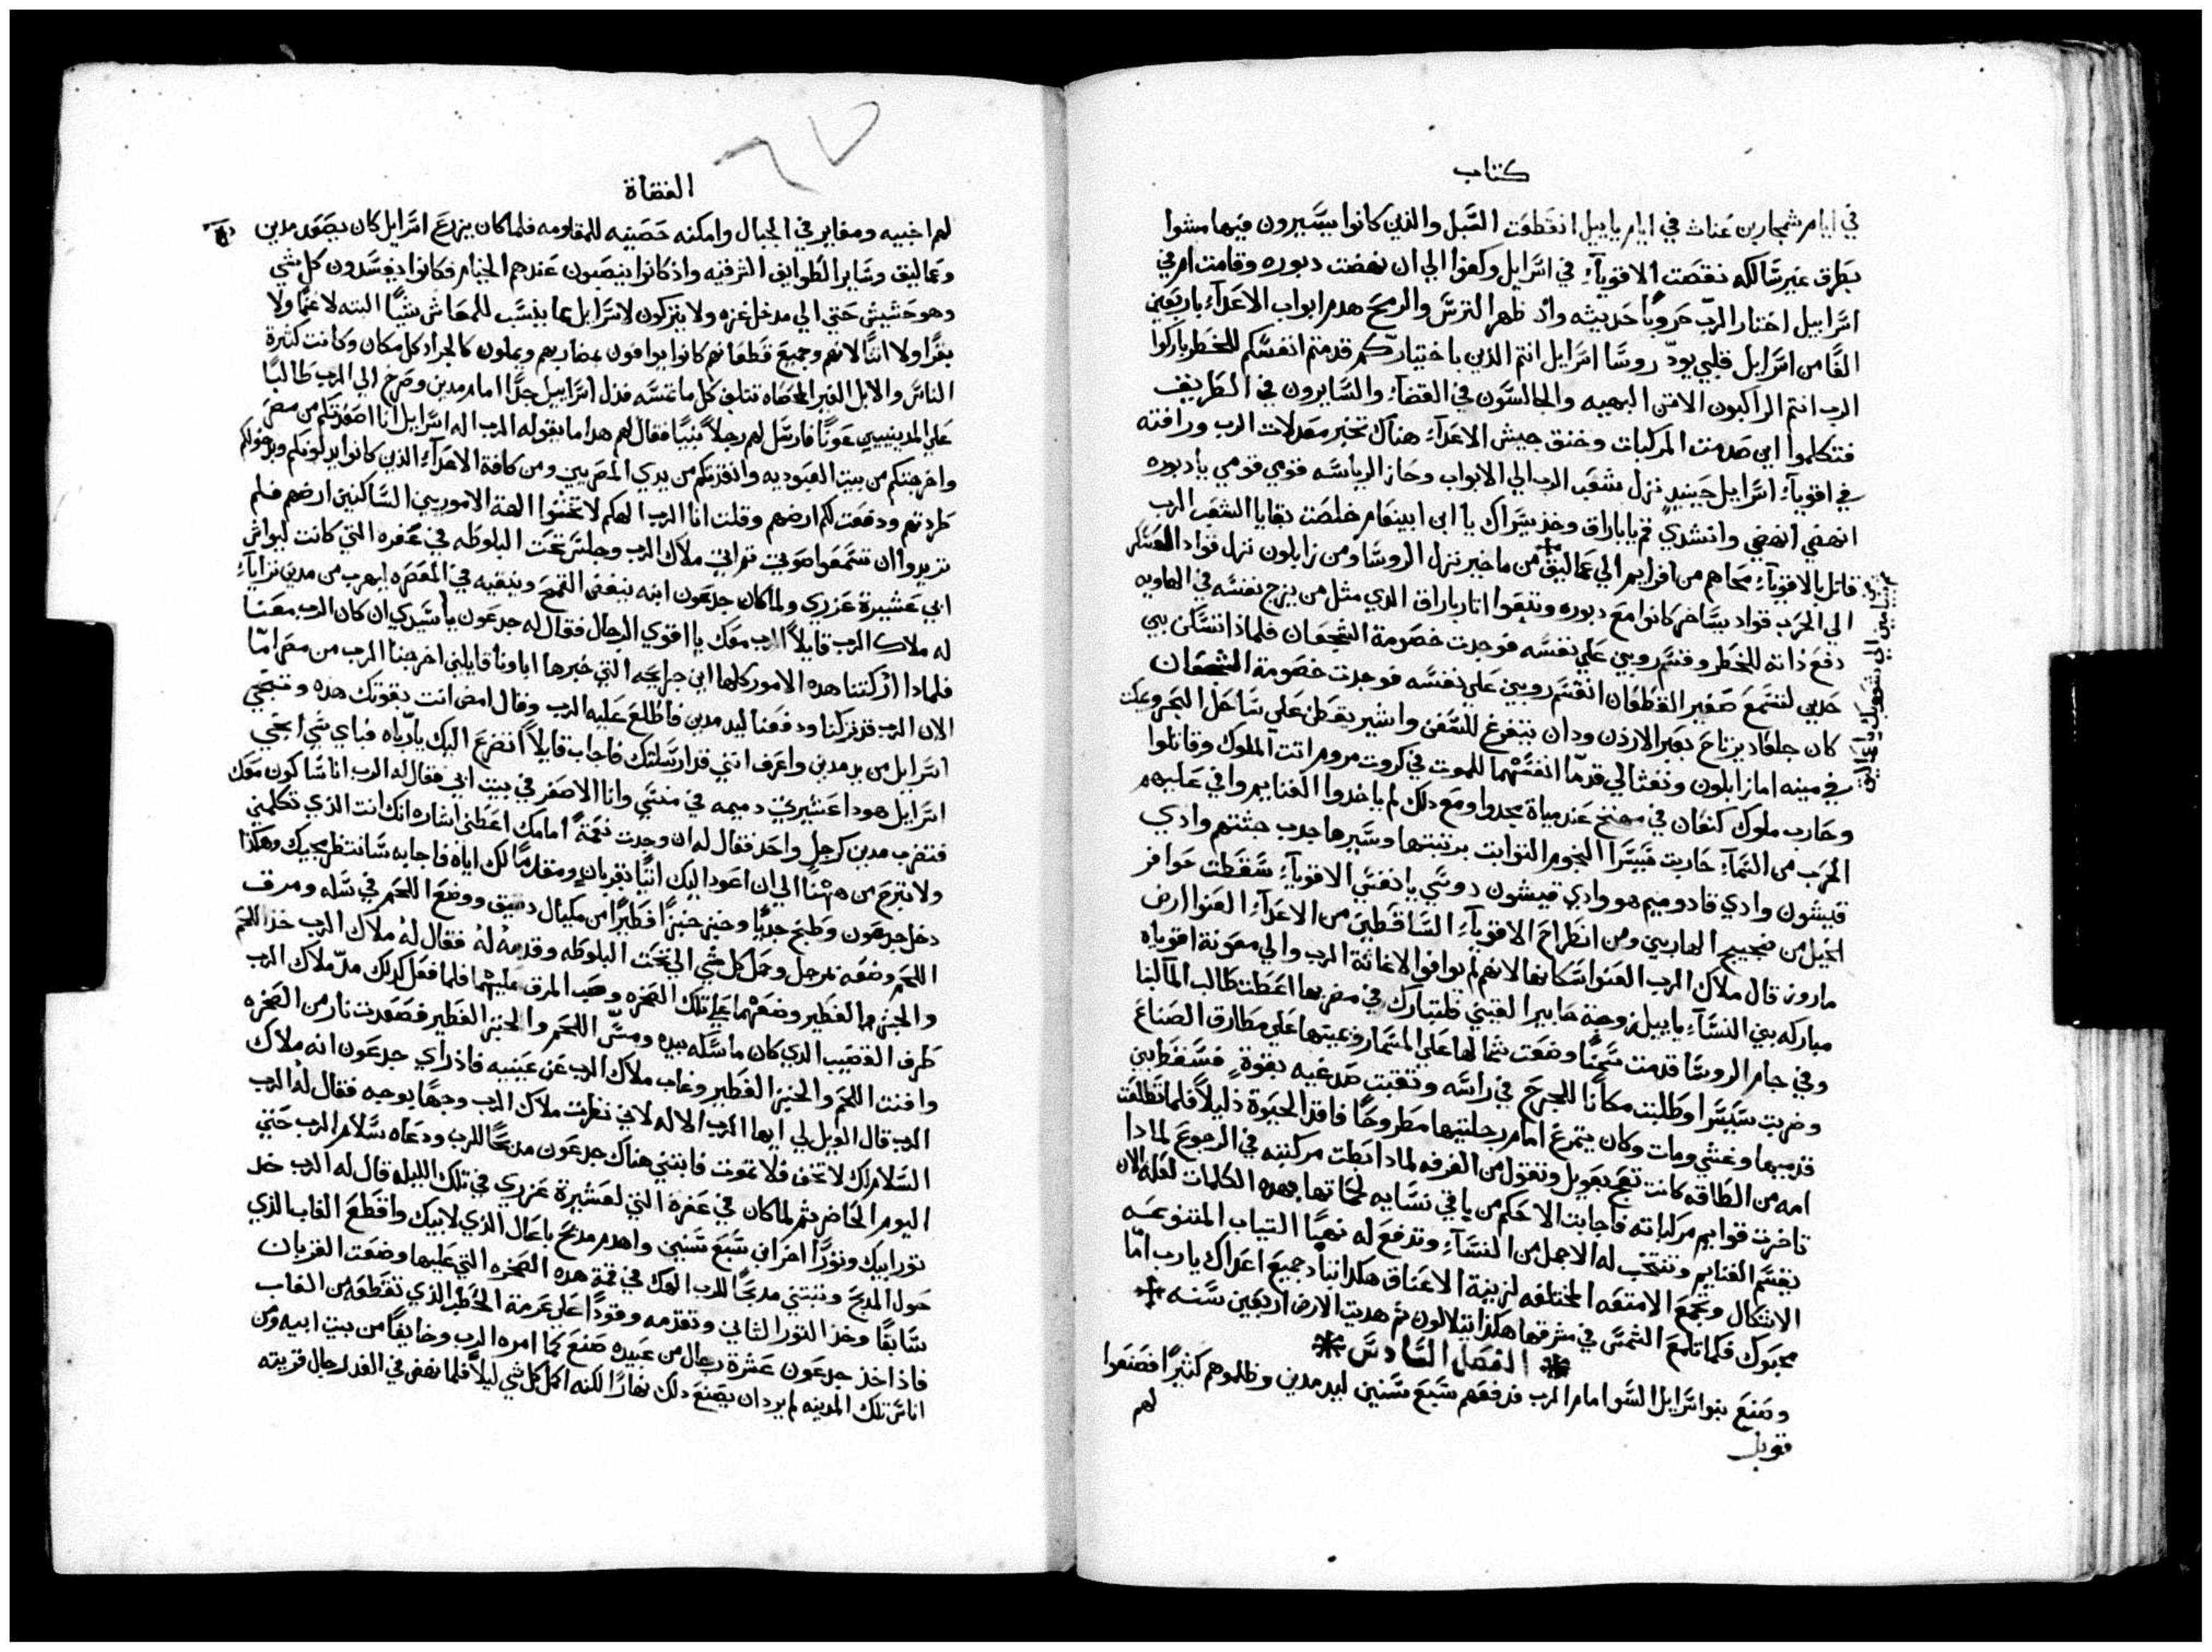 كتاب
في ايام شمجار بن عناث في ايام ياييل انقطعت السبل والذين كانوا يسيرون فيها مشوا
بطرق غير سالكه نقصت الاقوياء في اسرايل وكفوا الي ان نهضت دبوره وقامت ام في
اسراييل اختار الرب حروبًا حديثه واذ ظهر الترس والرمح هدم ابواب الاعداء باربعين
الفًا من اسرايل قلبي يودّ روسا اسرايل انتم الذين باختياركم قدمتم انفسكم للخطر باركوا
الرب انتم الراكبون الاتن البهيه والجالسون في القضاء والسايرون في الطريف
فتكلموا اين صدمت المركبات وخنق جيش الاعداء هناك تخبر معدلات الرب ورافته
في اقوياء اسراييل حينيدٍ نزل شعب الرب الي الابواب وحاز الرياسه قومي قومي يا دبوره
انهضي انهضي وانشدي قم يا باراق وخذ يسراك يا ابن ابينعام خلصت بقايا الشعب الرب
قاتل بالاقوياء محاهم من افرايم الي عماليق من ماخير نزل الروسا ومن زابلون نزل قواد العسكر
بنيامين الي شعوبك يا عماليق
الي الحرب قواد يساخر كانوا مع دبوره وتبعوا اثار باراق الذي مثل من يزج نفسه في الهاويه
دفع ذاته للخطر وقسم روبين علي نفسه فوجدت خصومة الشجعان فلماذا تسكن بين
حدين لتسمع صفير القطعان انقسم روبين علي نفسه فوجدت خصومة الشجعان
كان جلعاد يرتاح بعبر الاردن ودان يتفرغ للسفن واشير يقطن علي ساحل البحر وعكف
في مينه اما زابلون ونفتالي قدمّا انفسهما للموت في كروت مروم اتت الملوك وقاتلوا
وحارب ملوك كنعان في تعنخ عند مياة مجدوا ومع دلك لم ياخدوا الغنايم وافي عليهم
الحرب من السماء حاربت قبيسرا النجوم الثوابت برتبتها وسيرها جدب جثثهم وادي
قيشون وادي قادوميم هو وادي قيشون دوسي يا نفسي الاقوياء سقطت حوافر
الخيل من ضجيج الهاربين ومن انطراح الاقوياء الساقطين من الاعداء العنوا ارض
ماروز قال ملاك الرب العنوا سكانها لانهم لم يوافوا لاغاثة الرب والي معونة اقوياه
مباركه بين النساء ياييل زوجة حابير القيني فلتبارك في مضربها اعطت طالب المآ لبنا
وفي جام الروسا قدمت سمنًا وضعت شمالها علي المسمار ويمينها علي مطارق الصناع
وضربت سيسرا وطلبت مكانًا للجرح في راسه وتقبت صدغيه بقوةٍ فسقط بين
قدميها وغشي ومات وكان يتمرغ امام رجلتيها مطروحًا فاقد الحيوة ذليلًا فلما تطلعت
امه من الطاقه كانت تعج بعويل وتقول من الغرفه لماذا ابطت مركبته في الرجوع لماذا
تاخرت قوايم مركباته فاجابت الاحكم من باقي نسايه لحماتها بهده الكلمات لعله الان
يقسم الغنايم وتنتخب له الاجمل من النساء وتدفع له نهبًا التياب المتنوعه
الاشكال وتجمع الامتعه المختلفه لزينة الاعناق هكذا تباد جميع اعداك يارب امّا
محبوك فكما تلمع الشمس في مشرقها هكذا يتلالون ثم هديت الارض اربعين سنه
الفصل السادس
وصنع بنوا سرايل السوا امام الرب فدفعهم سبع سنين ليد مدين وظلموهم كثيرًا فصنعوا
لهم
قوبل
القضاة
٦٧
لهم اخبيه ومغاير في الجبال وامكنه حصينه للمقاومه فلما كان يزرع اسرايل كان يصعد مدين
وعماليق وساير الطوايف الشرقيه واذ كانوا ينصبون عندهم الخيام فكانوا يفسدون كل شي
وهو حشيش حتي الي مدخل غزه ولا يتركون لاسرايل مما ينسب للمعاش شيًا البته لا غنمًا ولا
بقرًا ولا اتنًا لانهم وجميع قطعانهم كانوا يوافون بمضاربهم ويملون كالجراد كل مكان وكانت كثرة
الناس والابل الغير المحصاه تتلف كل ما تمسه فذل اسراييل جدًا امام مدين وصرخ الي الرب طالبًا
علي المدينيين عونًا فارسل لهم رجلًا نبيًا فقال لهم هدا ما يقوله الرب اله اسرايل انا اصعدتكم من مصر
واخرجتكم من بيت العبوديه وانقذتكم من يدي المصريين ومن كافة الاعداء الذين كانوا يدلونكم وبدخولكم
طردتهم ودفعت لكم ارضهم وقلت انا الرب الهكم لا تخشوا الهة الاموريين الساكنين ارضهم فلم
تريدوا ان تسمعوا صوتي ثم اتي ملاك الرب وجلس تحت البلوطه في عفره التي كانت ليواش
ابي عشيرة عزري ولما كان جدعون ابنه ينفض القمح وينقيه في المعصره ليهرب من مدين ترايآء
له ملاك الرب قايلًا الرب معك يا اقوي الرجال فقال له جدعون يا سيدي ان كان الرب معنا
فلماذا ادركتنا هده الامور كلها اين جرايحه التي خبرها اباونا قايلين اخرجنا الرب من مصر امّا
الان الرب قد تركنا ودفعنا ليد مدين فاطلع عليه الرب وقال امض انت بقوتك هده وتنجي
اسرايل من يد مدين واعرف انني قد ارسلتك فاجاب قايلًا اتضرع اليك يا ربّاه فباي شي انجي
اسرايل هودا عشيرتي دميمه في منسي وانا الاصغر في بيت ابي فقال له الرب انا ساكون معك
فتضرب مدين كرجلٍ واحد فقال له ان وجدت نعمةً امامك اعطني اشاره انك انت الذي تكلمني
ولا تبرح من ههنا الي ان اعود اليك اتيًا بقربانٍ ومقدمًا لك اياه فاجابه سانتظر مجيك وهكذا
دخل جدعون وطبخ جديًا وخبز خبزًا فطيرًا من مكيال دقيق ووضع اللحم في سله ومرق
اللحم وضعه بمرجل وحمل كل شي الي تحت البلوطه وقدمهُ لهُ فقال لهُ ملاك الرب خذ اللحم
والخبز الفطير وضعهما علي تلك الصخره وصب المرق عليهما فلما فعل كدلك مدّ ملاك الرب
طرف القضيب الدي كان ماسكه بيده ومسّ اللحم والخبز الفطير فصعدت نار من الصخره
وافنت اللحم والخبز الفطير وغاب ملاك الرب عن عينيه فاذ راي جدعون انه ملاك
الرب قال الويل لي ايها الرب الاله لاني نظرت ملاك الرب وجهًا بوجه فقال لهُ الرب
السلام لك لا تخف فلا تموت فابتني هناك جدعون مدبحًا للرب ودعاه سلام الرب حتي
اليوم الحاضر ثم لما كان في عفرة التي لعشيرة عزري في تلك الليله قال له الرب خد
ثور ابيك وثورًا اخر ابن سبع سنين واهدم مدبح باعال الذي لابيك واقطع الغاب الذي
حول المدبح وتبتني مدبحًا للرب الهك في قمة هده الصخره التي عليها وضعت القربان
سابقًا وخذ الثور الثاني وتقدمه وقودًا علي عرمة الحطب الذي تقطعه من الغاب
فاذ اخذ جدعون عشرة رجال من عبيده صنع كما امره الرب وخايفًا من بيت ابيه ومن
اناس تلك المدينه لم يرد ان يصنع دلك نهارًا لكنه اكمل كل شي ليلًا فلما نهض في الغد رجال قريته